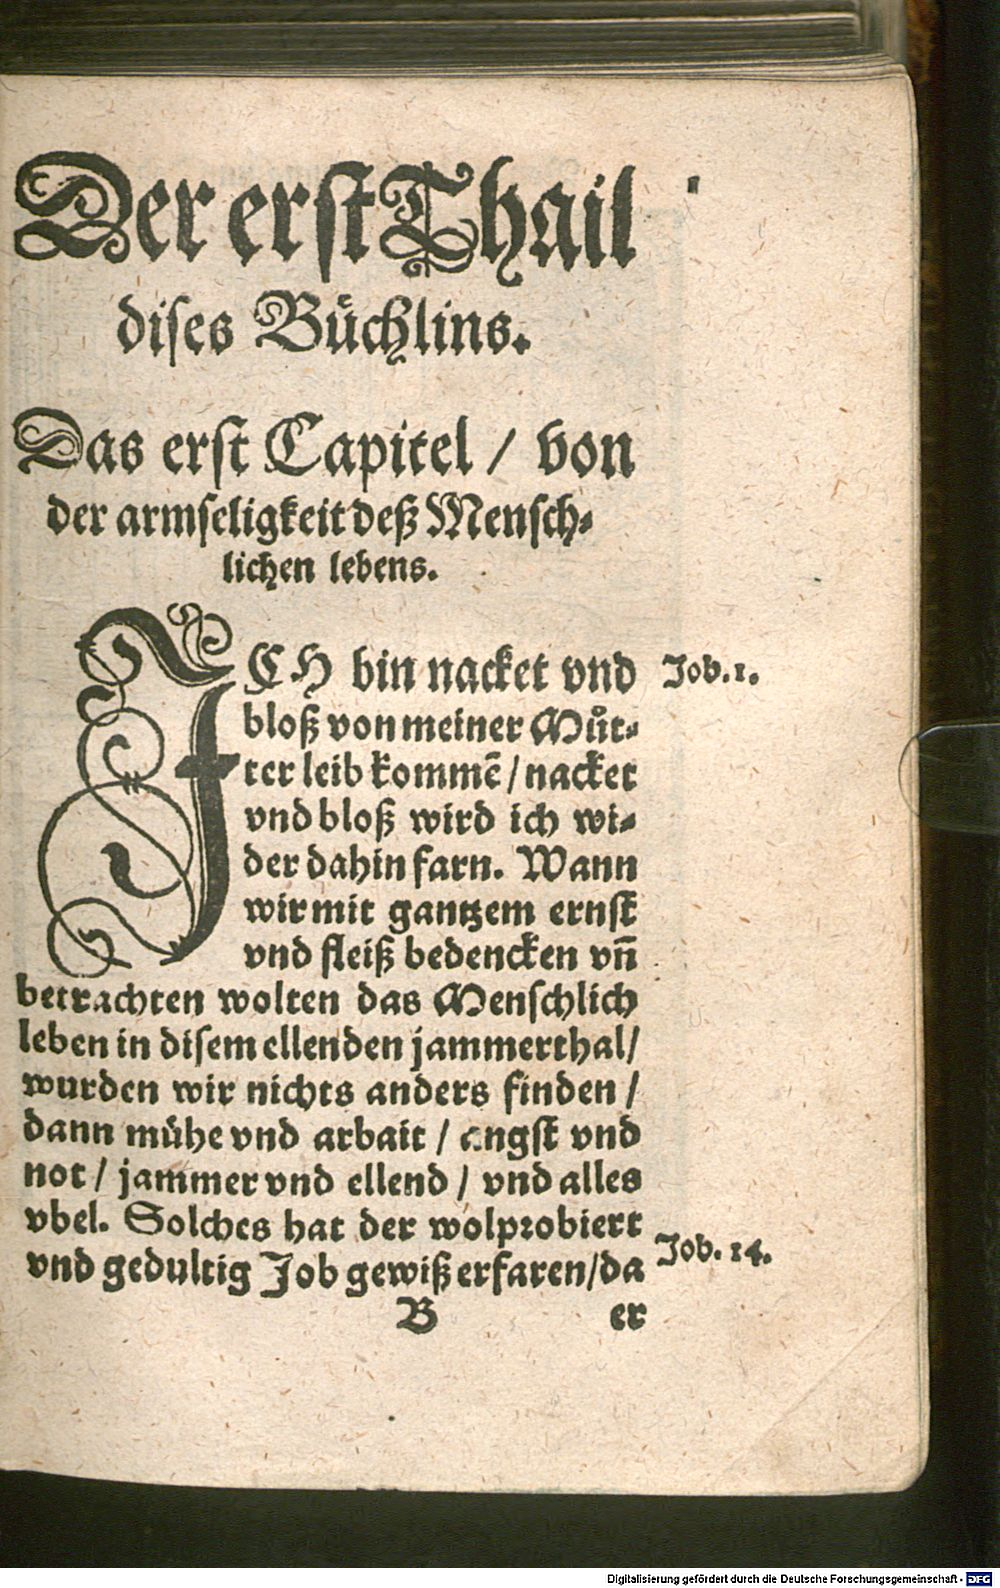 Der erst Thail
dises Büchlins.
Das erst Capitel / von
der armseligkeit deß Mensch⸗
lichen lebens.
ICH bin nacket vnd
Job. 1.
bloß von meiner Můt⸗
ter leib kommē / nacket
vnd bloß wird ich wi⸗
der dahin farn. Wann
wir mit gantzem ernst
vnd fleiß bedencken vñ
betrachten wolten das Menschlich
leben in disem ellenden jammerthal /
wurden wir nichts anders finden /
dann mühe vnd arbait / angst vnd
not / jammer vnd ellend / vnd alles
vbel. Solches hat der wolprobiert
Job. 14.
vnd gedultig Job gewiß erfaren / da
B er
Digitalisierung gefördert durch die Deutsche Forschungsgemeinschaft - DFG